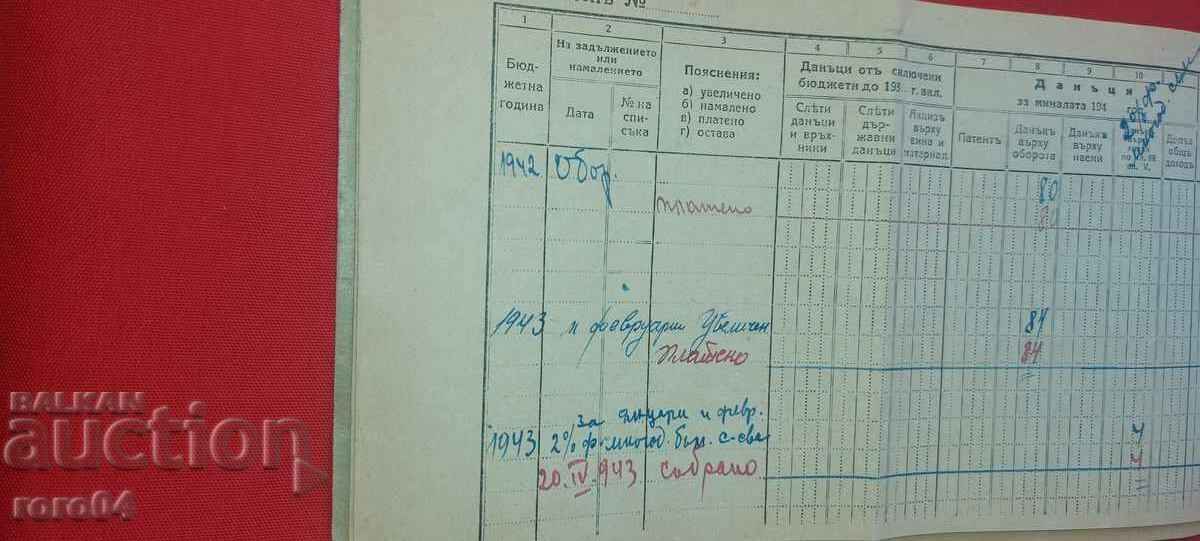 №
1 2 3 4 5 6 7 8 9 10
Бюд-
жетна
година
Из задължението
или
намалението
Дата
№ на
спи-
съка
Пояснения:
а) увеличено
б) намалено
в) платено
г) остава
Данъци отъ сключени
бюджети до 193 г. вкл.
Слѣти
данъци
и връх-
нини
Слѣти
дър-
жавни
данъци
върху
вина и
материал.
Данъци
за миналата 194
Патентъ
Данъкъ
върху
оборота
Данъкъ
върху
наеми
Допъл
общъ
доходъ
1942 Обор. 80
платено 80
1943 и февруари Увеличен 84
платено 84
за януари и февр.
1943 2% ф. многод. бълг. с-ва 4
20.IV.943 събрано 4
BALKAN
auction
roro04